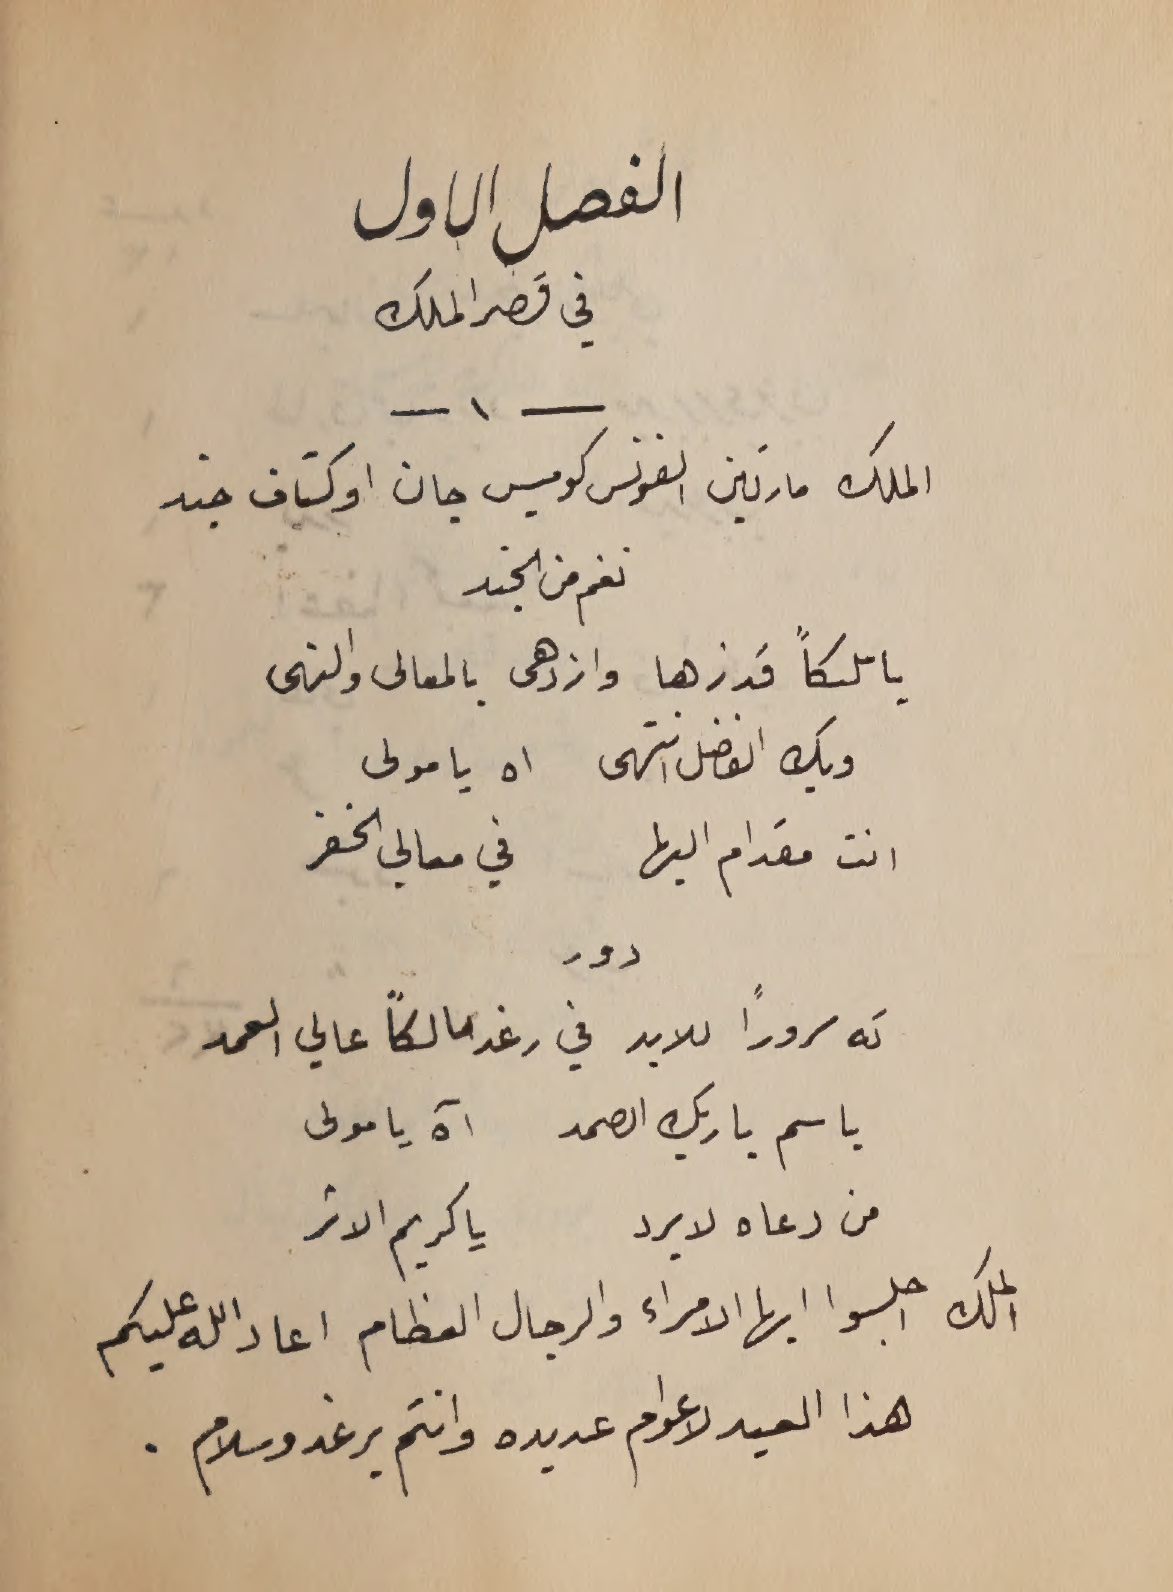 الفصل الاول
في قصر الملك
— ١ —
الملك مارتين الفونس كوميس جان اوكتاف جند
نغم من الجند
يا ملكاً قد زها وازدهى بالمعالى والنهى
وبك الفضل انتهى اه يا مولى
انت مقدام البها في معالي الخفر
دور
ته سروراً للابد في رغد مالكاً عالي العمد
باسم باريك الصمد آه يا مولى
من دعاه لا يرد يا كريم الاثر
الملك اجلسوا ايها الامراء والرجال العظام اعاد الله عليكم
هذا العيد لاعوام عديده وانتم برغد وسلام .